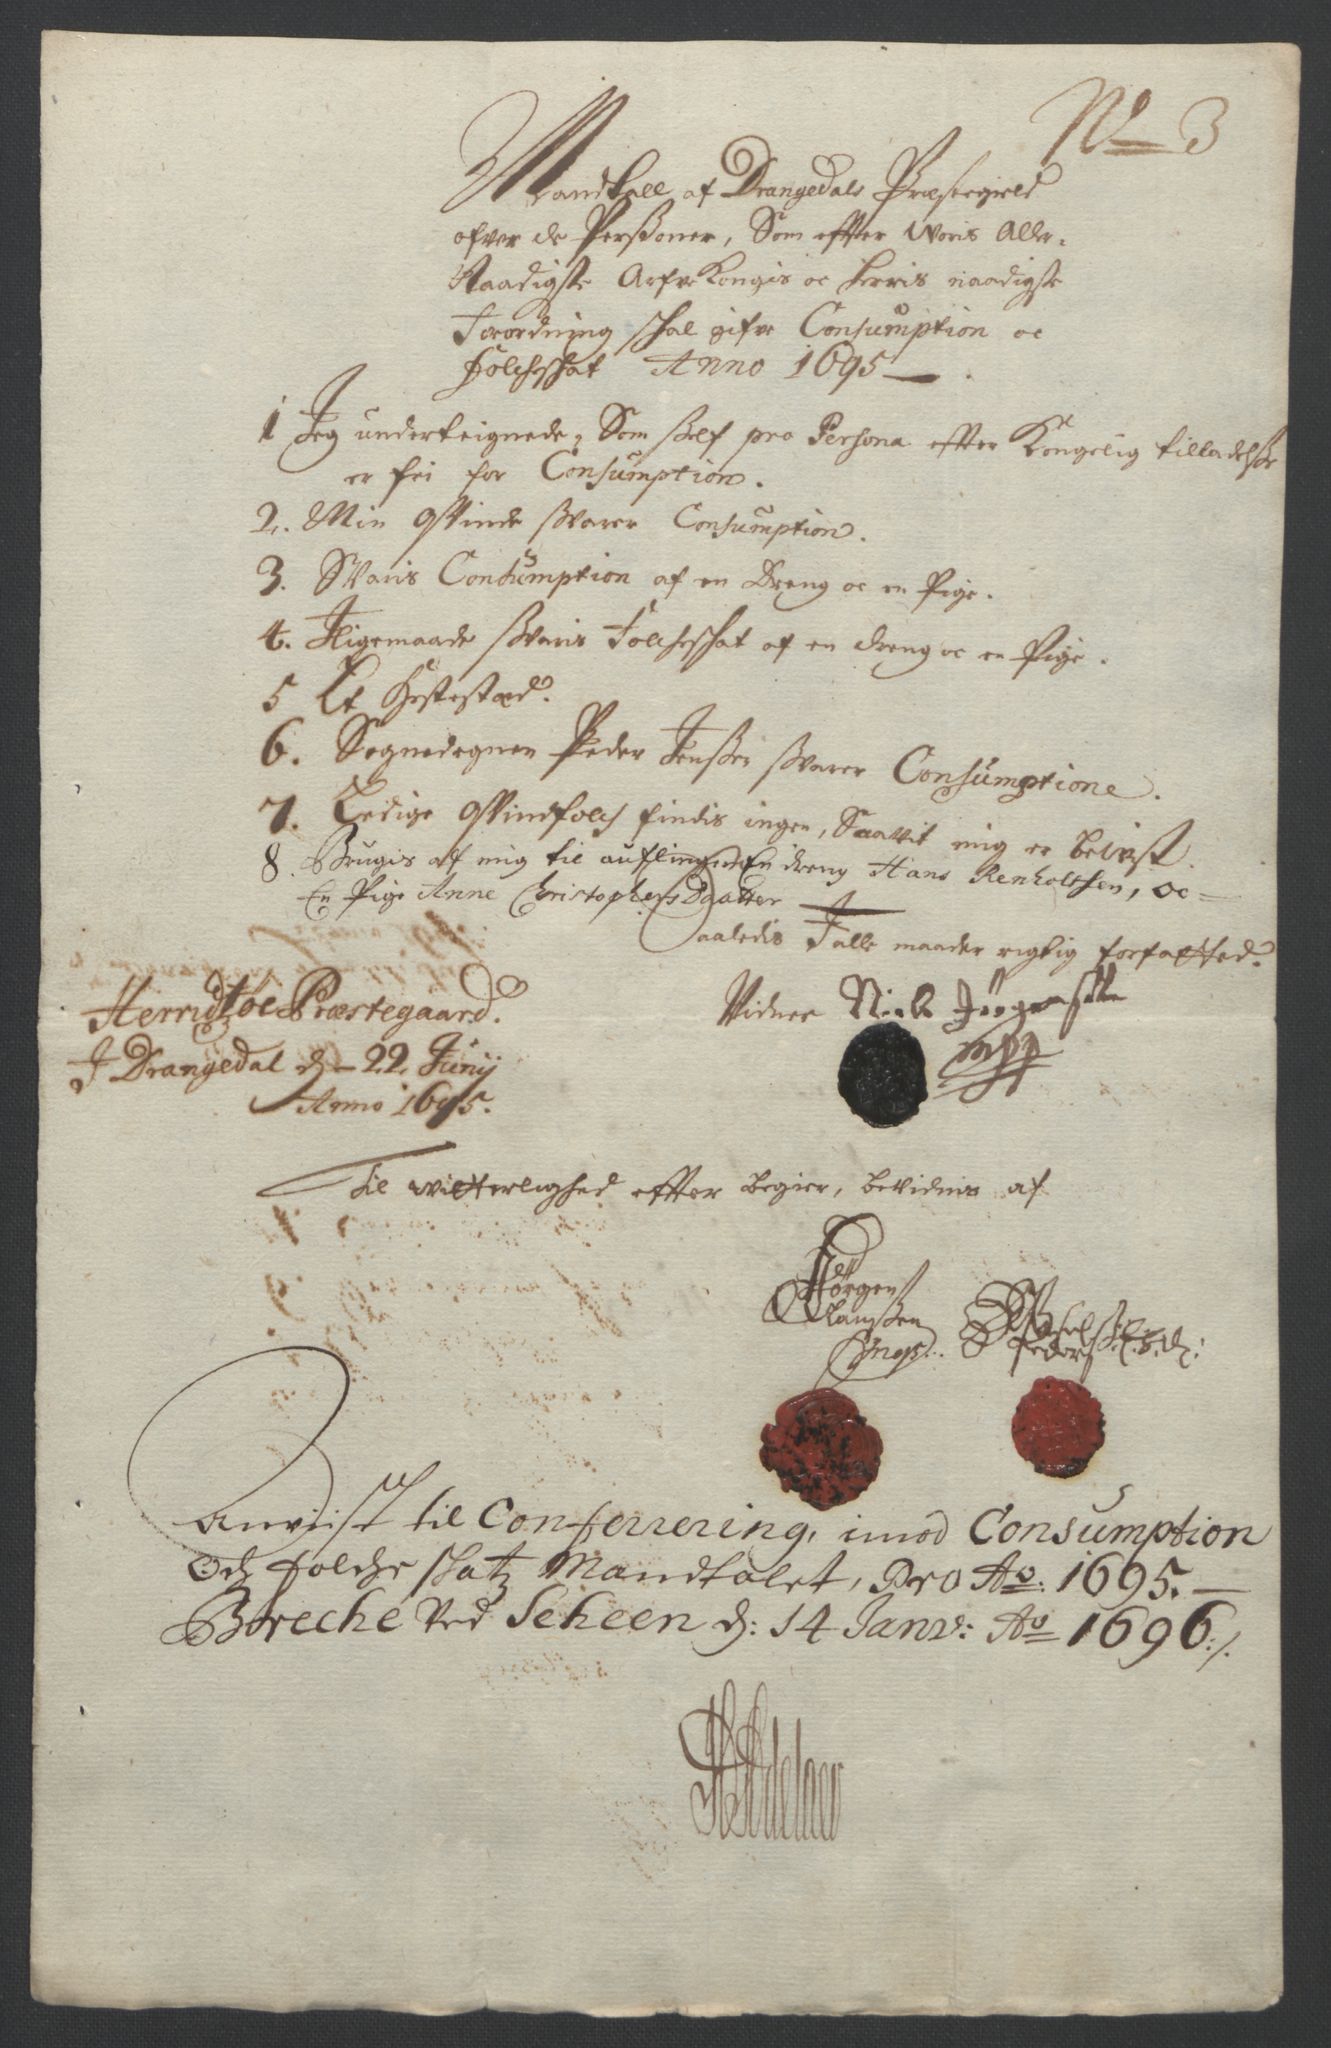 No 3
Mandtall af Drangedals Præstegield
ofver de Persßoner, Som effter Woris Aller-
Naadigste Arfve Kongis oc Herris naadigste
Forordning schal gifve Consumption oc
Folcheschat Anno 1695 — .
1 Jeg underteignede, Som sielf pro Persona effter Kongelig tilladelsße
er fri for Consumption.
2. Min Qvinde svarer Consumption.
3. Svaris Consumption af en Dreng oc en Pige.
4. Iligemaade svaris Folcheschat af en dreng oc en Pige.
5 Et Hestestæd.
6. Sognedegnen Peder Jenßen svarer Consumptione.
7. Ledige Qvindfolch findis ingen, Saavit mig er beivst.
8. Brugis af mig til auflingen En dreng Hans Renholtsen, oc —
En Pige Anne Christophersdaatter
Saaledis I alle maader rigtig forfatted.
Herridtzøe Præstegaard.
I Drangedal d. 22 Junij
Anno 1695.
Vidner Niels Jørgensøn
mpp
Til witterlighed effter begier, bevidnis af
Jørgen
Claußen
Peders
Anviist til Conferrering, imod Consumption
Och folche skatz Mandtalet, Pro Ao: 1695. —
Breche Ved Scheen d: 14 Janv: Ao 1696 :/.
H Adelaer